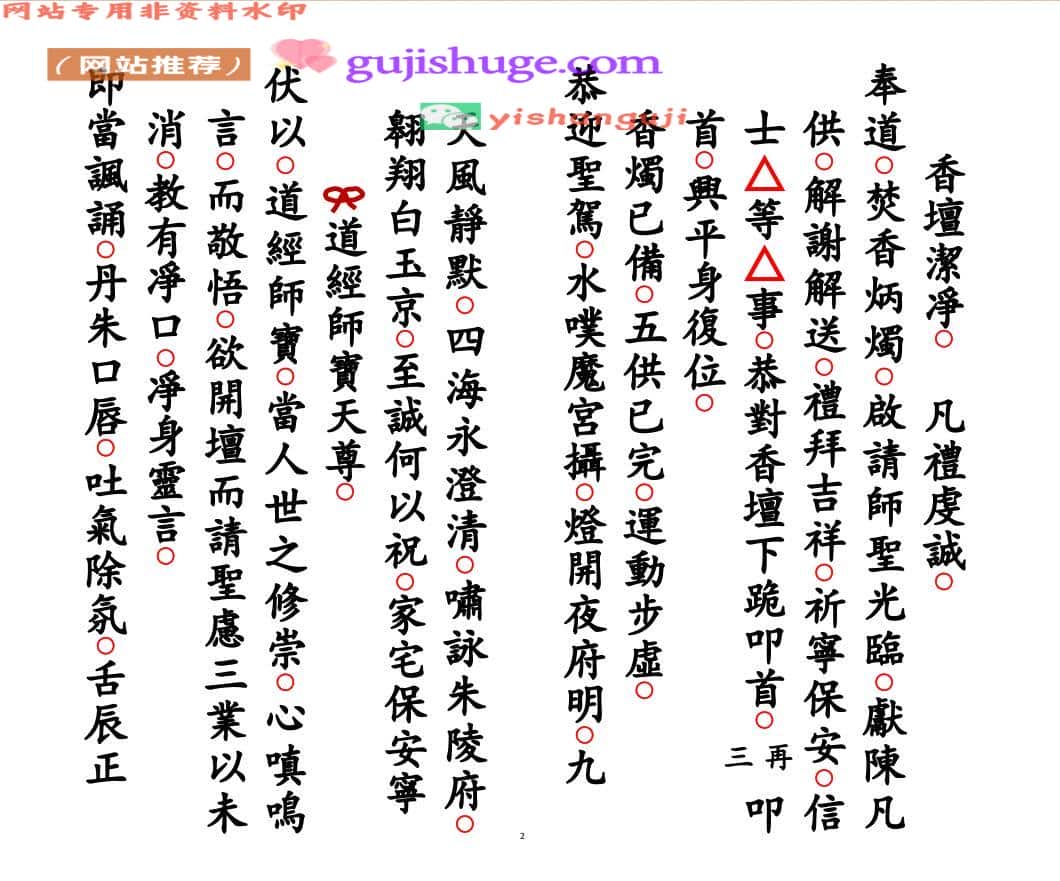 网站专用非资料水印
（网站推荐）
gujishuge.com
yishanguji
香壇潔淨○　凡禮虔誠○
奉道○焚香炳燭○啟請師聖光臨○獻陳凡
供○解謝解送○禮拜吉祥○祈寧保安○信
士△等△事○恭對香壇下跪叩首○再三叩
首○興平身復位○
香燭已備○五供已完○運動步虛○
恭迎聖駕○水噗魔宮攝○燈開夜府明○九
天風靜默○四海永澄清○嘯詠朱陵府○
翱翔白玉京○至誠何以祝○家宅保安寧
道經師寶天尊○
伏以○道經師寶○當人世之修崇○心嗔鳴
言○而敬悟○欲開壇而請聖慮三業以未
消○教有凈口○凈身靈言○
即當諷誦○丹朱口唇○吐氣除氛○舌辰正
2